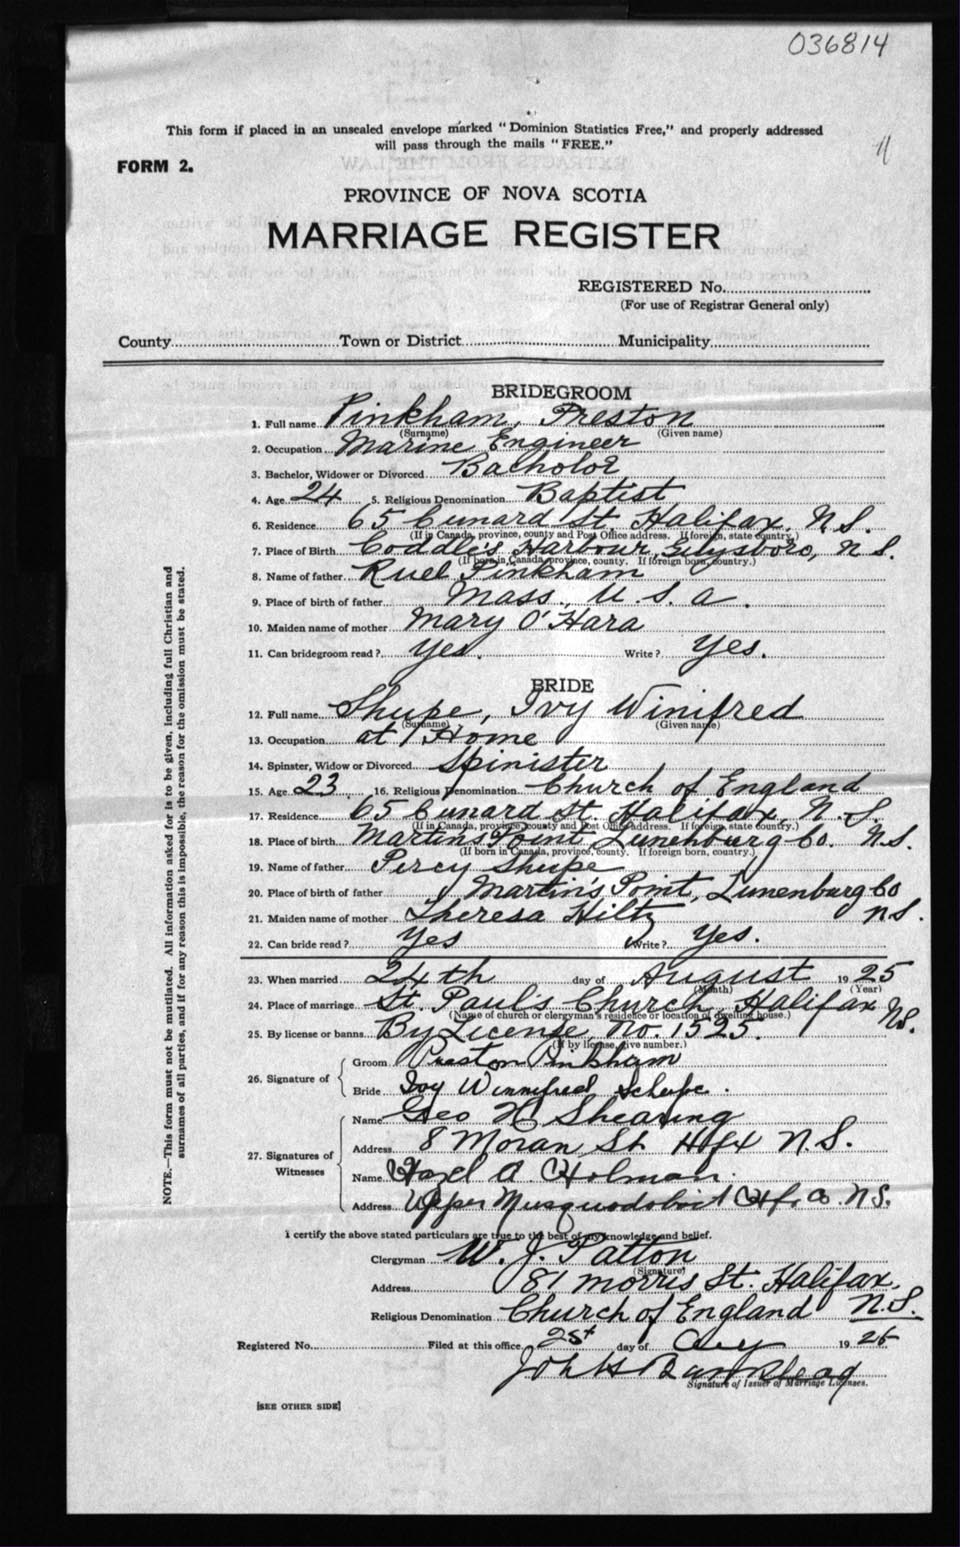 036814
This form if placed in an unsealed envelope marked "Dominion Statistics Free," and properly addressed
will pass through the mails "FREE."
11
FORM 2.
PROVINCE OF NOVA SCOTIA
MARRIAGE REGISTER
REGISTERED No.
(For use of Registrar General only)
County Town or District Municipality
BRIDEGROOM
1. Full name Pinkham, Preston
(Surname) (Given name)
2. Occupation Marine Engineer
3. Bachelor, Widower or Divorced Bacholor
4. Age 24 5. Religious Denomination Baptist
6. Residence 65 Cunard St. Halifax, N.S.
(If in Canada, province, county and Post Office address. If foreign, state country.)
7. Place of Birth Coddle's Harbour, Guysboro, N.S.
(If born in Canada, province, county. If foreign born, country.)
8. Name of father Ruel Pinkham
9. Place of birth of father Mass. U.S.A.
10. Maiden name of mother Mary O'Hara
11. Can bridegroom read? Yes. Write? Yes.
BRIDE
12. Full name Shupe, Ivy Winifred
(Surname) (Given name)
13. Occupation at Home
14. Spinster, Widow or Divorced Spinister
15. Age 23 16. Religious Denomination Church of England
17. Residence 65 Cunard St. Halifax, N.S.
(If in Canada, province, county and Post Office address. If foreign, state country.)
18. Place of birth Martins Point, Lunenburg Co. N.S.
(If born in Canada, province, county. If foreign born, country.)
19. Name of father Percy Shupe
20. Place of birth of father Martin's Point, Lunenburg Co
N.S.
21. Maiden name of mother Theresa Hiltz
22. Can bride read? Yes Write? Yes.
23. When married 24th day of August 1925
(Month) (Year)
24. Place of marriage St. Paul's Church, Halifax N.S.
(Name of church or clergyman's residence or location of dwelling house.)
25. By license or banns By License, No. 1525.
(If by license, give number.)
26. Signature of Groom Preston Pinkham
Bride Ivy Winnifred Schupe.
27. Signatures of Witnesses
Name Geo H Shearing
Address 8 Moran St. Hfx N.S.
Name Hazel A. Holman.
Address Upper Musquodoboit Hfx Co N.S.
I certify the above stated particulars are true to the best of my knowledge and belief.
Clergyman W. J. Patton
(Signature)
Address 81 Morris St. Halifax,
N.S.
Religious Denomination Church of England
Registered No. Filed at this office 25th day of Aug 1925
Signature of Issuer of Marriage Licenses.
[SEE OTHER SIDE]
NOTE.—This form must not be mutilated. All information asked for is to be given, including full Christian and
surnames of all parties, and if for any reason this is impossible, the reason for the omission must be stated.